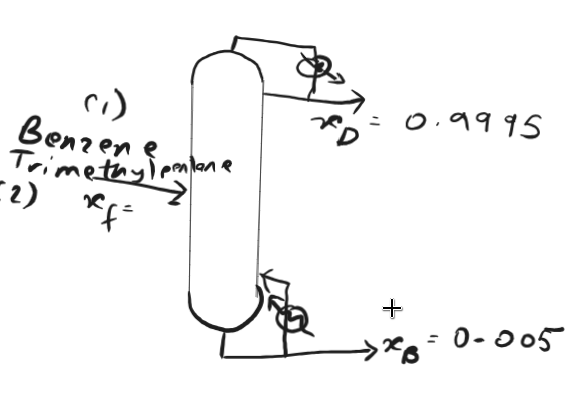 (1)
Benzene
Trimethylpentane
(2)
x_f =
x_D = 0.9995
x_B = 0.005